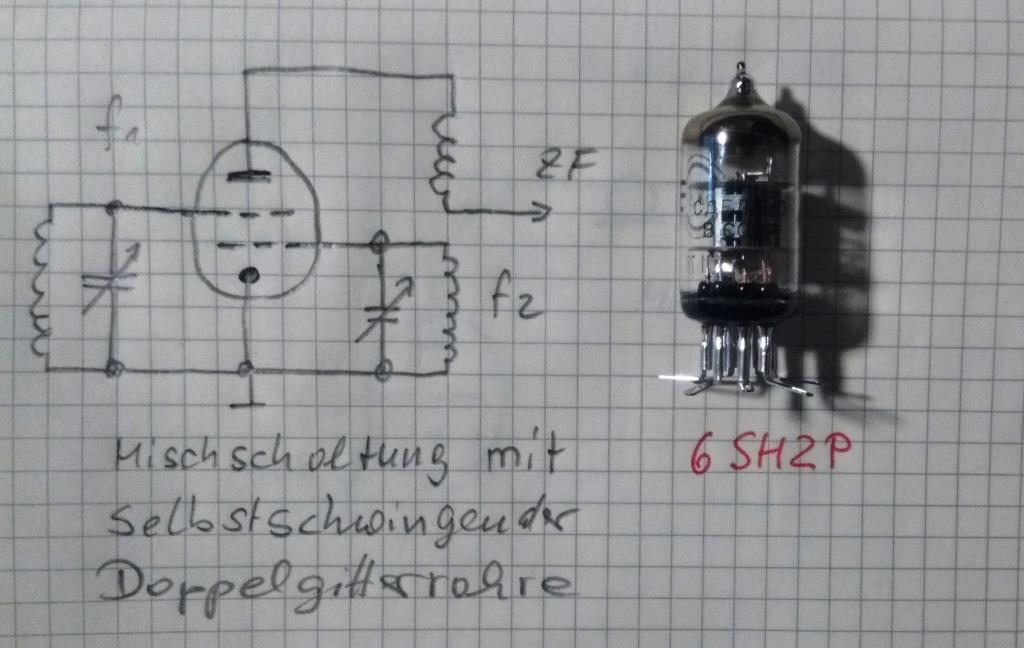 f1
ZF
f2
Mischschaltung mit
selbstschwingender
Doppelgitterröhre
6SH2P